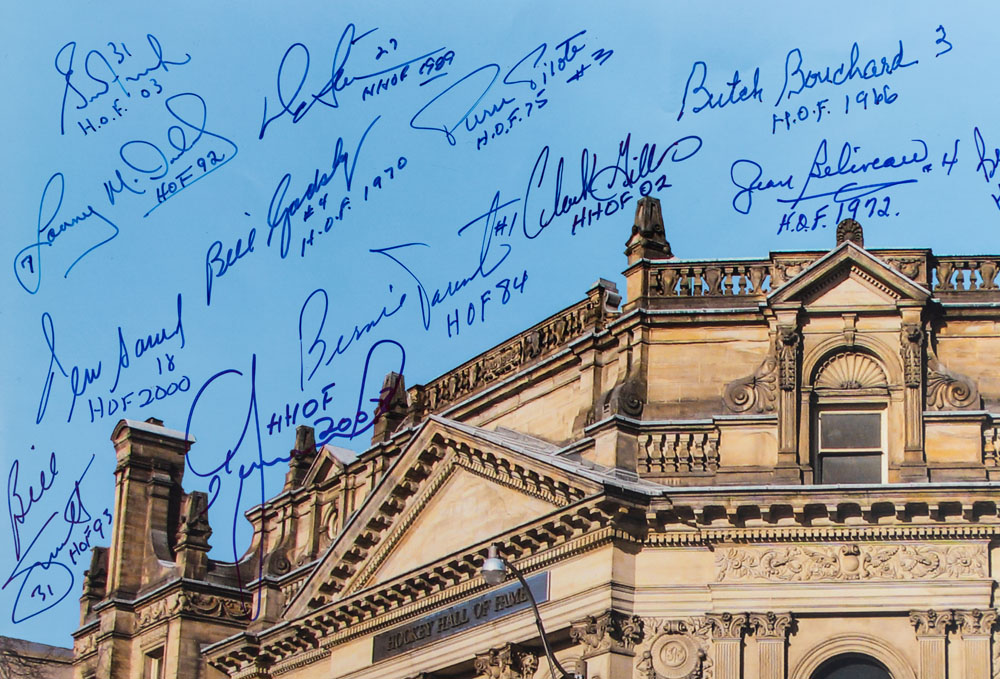 31
H.O.F. '03
27
HHOF 1989
Pierre Pilote
#3
H.O.F. 75
Butch Bouchard 3
H.O.F. 1966
Lanny McDonald
HOF 92
7
Bill Gadsby
#4
H.O.F. 1970
#1 Clark Gillies
HHOF 02
Jean Beliveau #4
H.O.F. 1972.
Bernie Parent
HOF 84
Denis Savard
18
HOF 2000
HHOF
2007
Bill Smith
HOF 93
31
HOCKEY HALL OF FAME